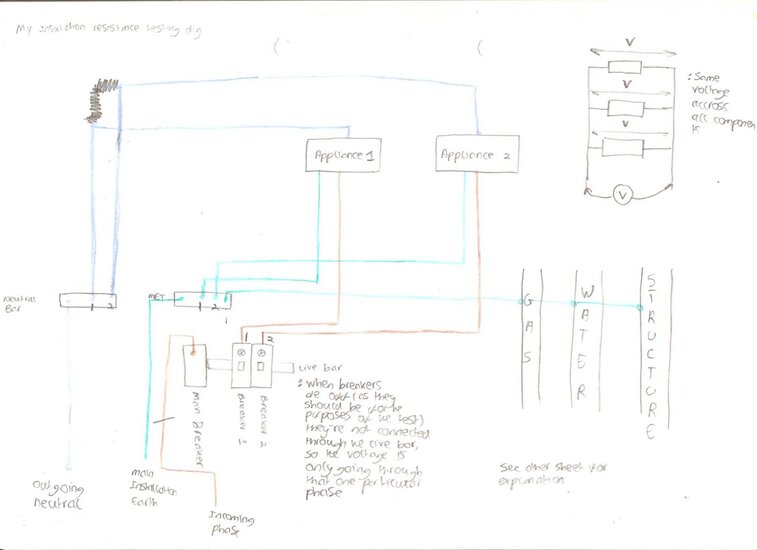 My Insulation resistance testing dig
V
V
V
V
: Same
voltage
accross
all component
s
Appliance 1
Appliance 2
Neutral
Bar
1 2
MET
1 2
1
1 2
Live bar
: when breakers
are odd (as they
should be for the
purposes of the test)
they're not connected
through the live bar,
so the voltage is
only going through
that one particular
phase
Main Breaker
Breaker 1
Breaker 2
GAS
WATER
STRUCTURE
Outgoing
neutral
main
Installation
Earth
Incoming
phase
See other sheet for
explanation